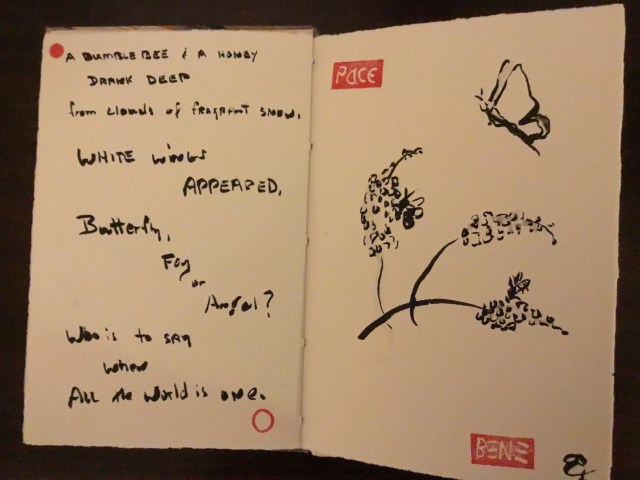 A BUMBLEBEE & A HONEY
DRANK DEEP
from clouds of fragrant snow.
WHITE wings
APPEARED.
Butterfly,
Fay
or
Angel?
Who is to say
when
All the world is one.
PACE
BENE